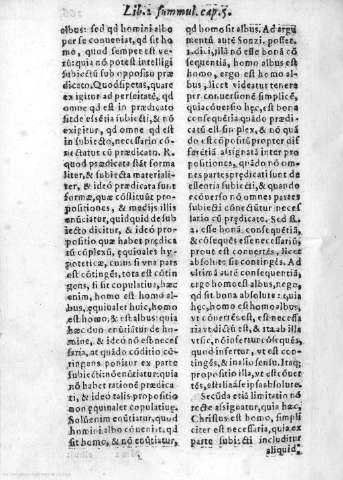 Lib.2 summul. cap.5.
albus: sed qd homini albo
per se conueniat, qd sit ho
mo, quod semper est ve-
rũ: quia nõ potest intelligi
subiectũ sub opposito præ
dicato. Quod si petas, quare
exigitur ad perseitatẽ, qd
omne qd est in prædicato
sit de essẽtia subiecti, & nõ
exigitur, qd omne qd est
in subiecto, necessario cõn
nectatur cũ prædicato. R.
quod prædicata stãt forma
liter, & subiecta materiali-
ter, & ideò prædicata sunt
formæ, quæ cõstituũt pro-
positiones, & medijs illis
enũciatur, quidquid de sub
iecto dicitur, & ideò pro-
positio quæ habet prædica
tũ cõplexũ, equiualet hy-
potetticæ, cuius si vna pars
est cõtingẽs, tota est cõtin
gens, si sit copulatiua, hæc
enim, homo est homo al-
bus, equiualet huic, homo
est homo, & est albus: quia
hæc duo enũciãtur de ho-
mine, & ideò nõ est neces-
saria, at quãdo cõditio cõ-
tingens ponitur ex parte
subiecti nõ enũciatur: quia
nõ habet rationẽ prædica-
ti, & ideò talis propositio
non equiualet copulatiuę.
Nõ enim enũciatur, quod
homini albo conueniat, qd
sit homo, & nõ enũtiatur,
qd homo sit albus. Ad argu
mẽtũ autẽ Sonzi. posset
dici, illã nõ esse bonã
consequentiã, homo albus est
homo, ergo est homo al-
bus, licet videatur tenere
per conuersionẽ simplicẽ,
quia cõuersio hęc, est bona
consequẽtia quãdo prædi-
catũ est simplex, & nõ quã
do est cõpositũ propter dif
ferẽtiã assignatã inter pro
positiones, quãdo nõ om-
nes partes prædicati sunt de
essentia subiecti, & quando
econuerso nõ omnes partes
subiecti cõnectũtur neces-
sario cũ prędicato. Sed si
a. esse bonã consequẽtiã,
& cõsequẽs esse necessariũ,
prout est conuertẽs, licet
absolute sit contingẽs. Ad
vltimã autẽ consequentiã,
ergo homo est albus, nego,
qd sit bona absolute: quia
hęc, homo est homo albus,
vt conuertẽs est, est necessa
ria vt dictũ est, & ita ab illa
vt sic, nõ infertur cõsequẽs,
quod infertur, vt est con-
tingẽs, & in alio sensu. Itaq;
propositio illa, vt est cõuer
tẽs, est alia à se ipsa absolute.
Secũda etiã limitatio nõ
recte assignatur, quia hæc,
Christus est homo, simpli
citer est necessaria, quia ex
parte subiecti includitur
aliquid